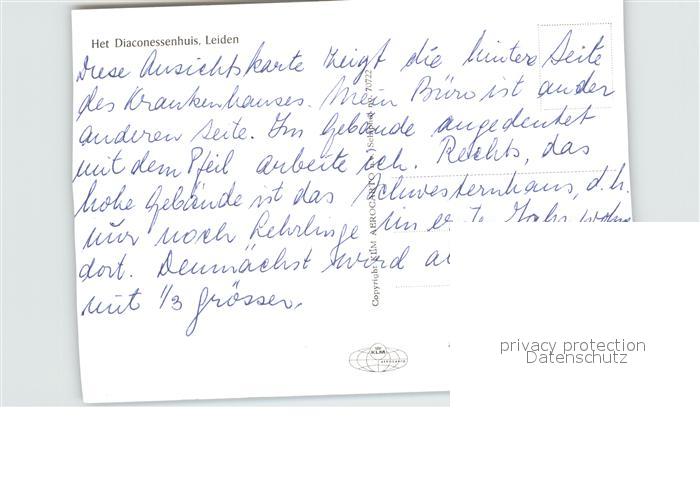 Het Diaconessenhuis, Leiden
Diese Ansichtskarte zeigt die hintere Seite
des Krankenhauses. Mein Büro ist an der
anderen Seite. Im Gebäude angedeutet
mit dem Pfeil arbeite ich. Rechts, das
hohe Gebäude ist das Schwesternhaus, d.h.
nur noch Lehrlinge im
dort. Demnächst wird
mit 1/3 grösser.
Copyright KLM AEROCARTO n.v. Schiphol nr. 70722
KLM
AEROCARTO
privacy protection
Datenschutz